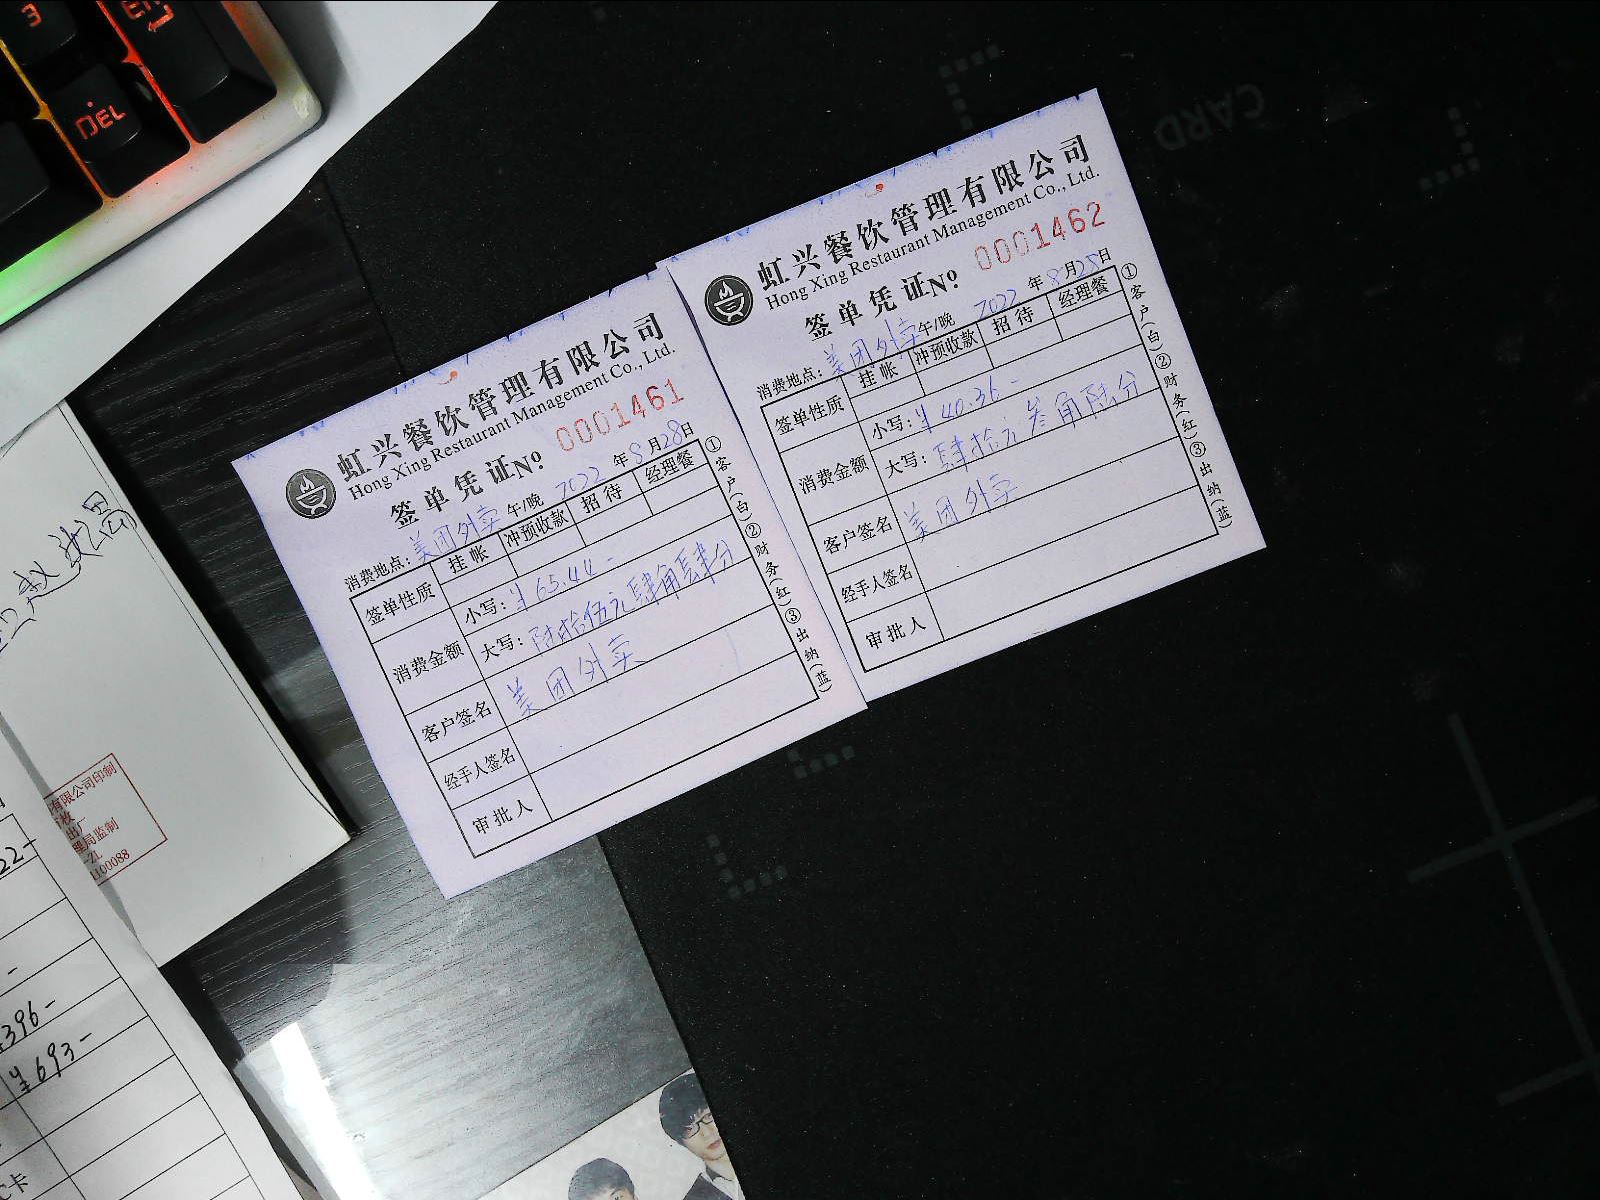 3
DEL
CARD
虹兴餐饮管理有限公司
Hong Xing Restaurant Management Co., Ltd.
签单凭证 Nº 0001461
消费地点：美团外卖 午/晚 2022 年 8 月 28 日
签单性质 挂帐 冲预收款 招待 经理餐
消费金额 小写：¥65.44-
大写：陆拾伍元肆角肆分
客户签名 美团外卖
经手人签名
审批人
①客户(白)②财务(红)③出纳(蓝)
虹兴餐饮管理有限公司
Hong Xing Restaurant Management Co., Ltd.
签单凭证 Nº 0001462
消费地点：美团外卖 午/晚 2022 年 8 月 25 日
签单性质 挂帐 冲预收款 招待 经理餐
消费金额 小写：¥40.36-
大写：肆拾元叁角陆分
客户签名 美团外卖
经手人签名
审批人
①客户(白)②财务(红)③出纳(蓝)
有限公司印制
出厂
理局监制
1100088
22-
396-
¥693-
卡